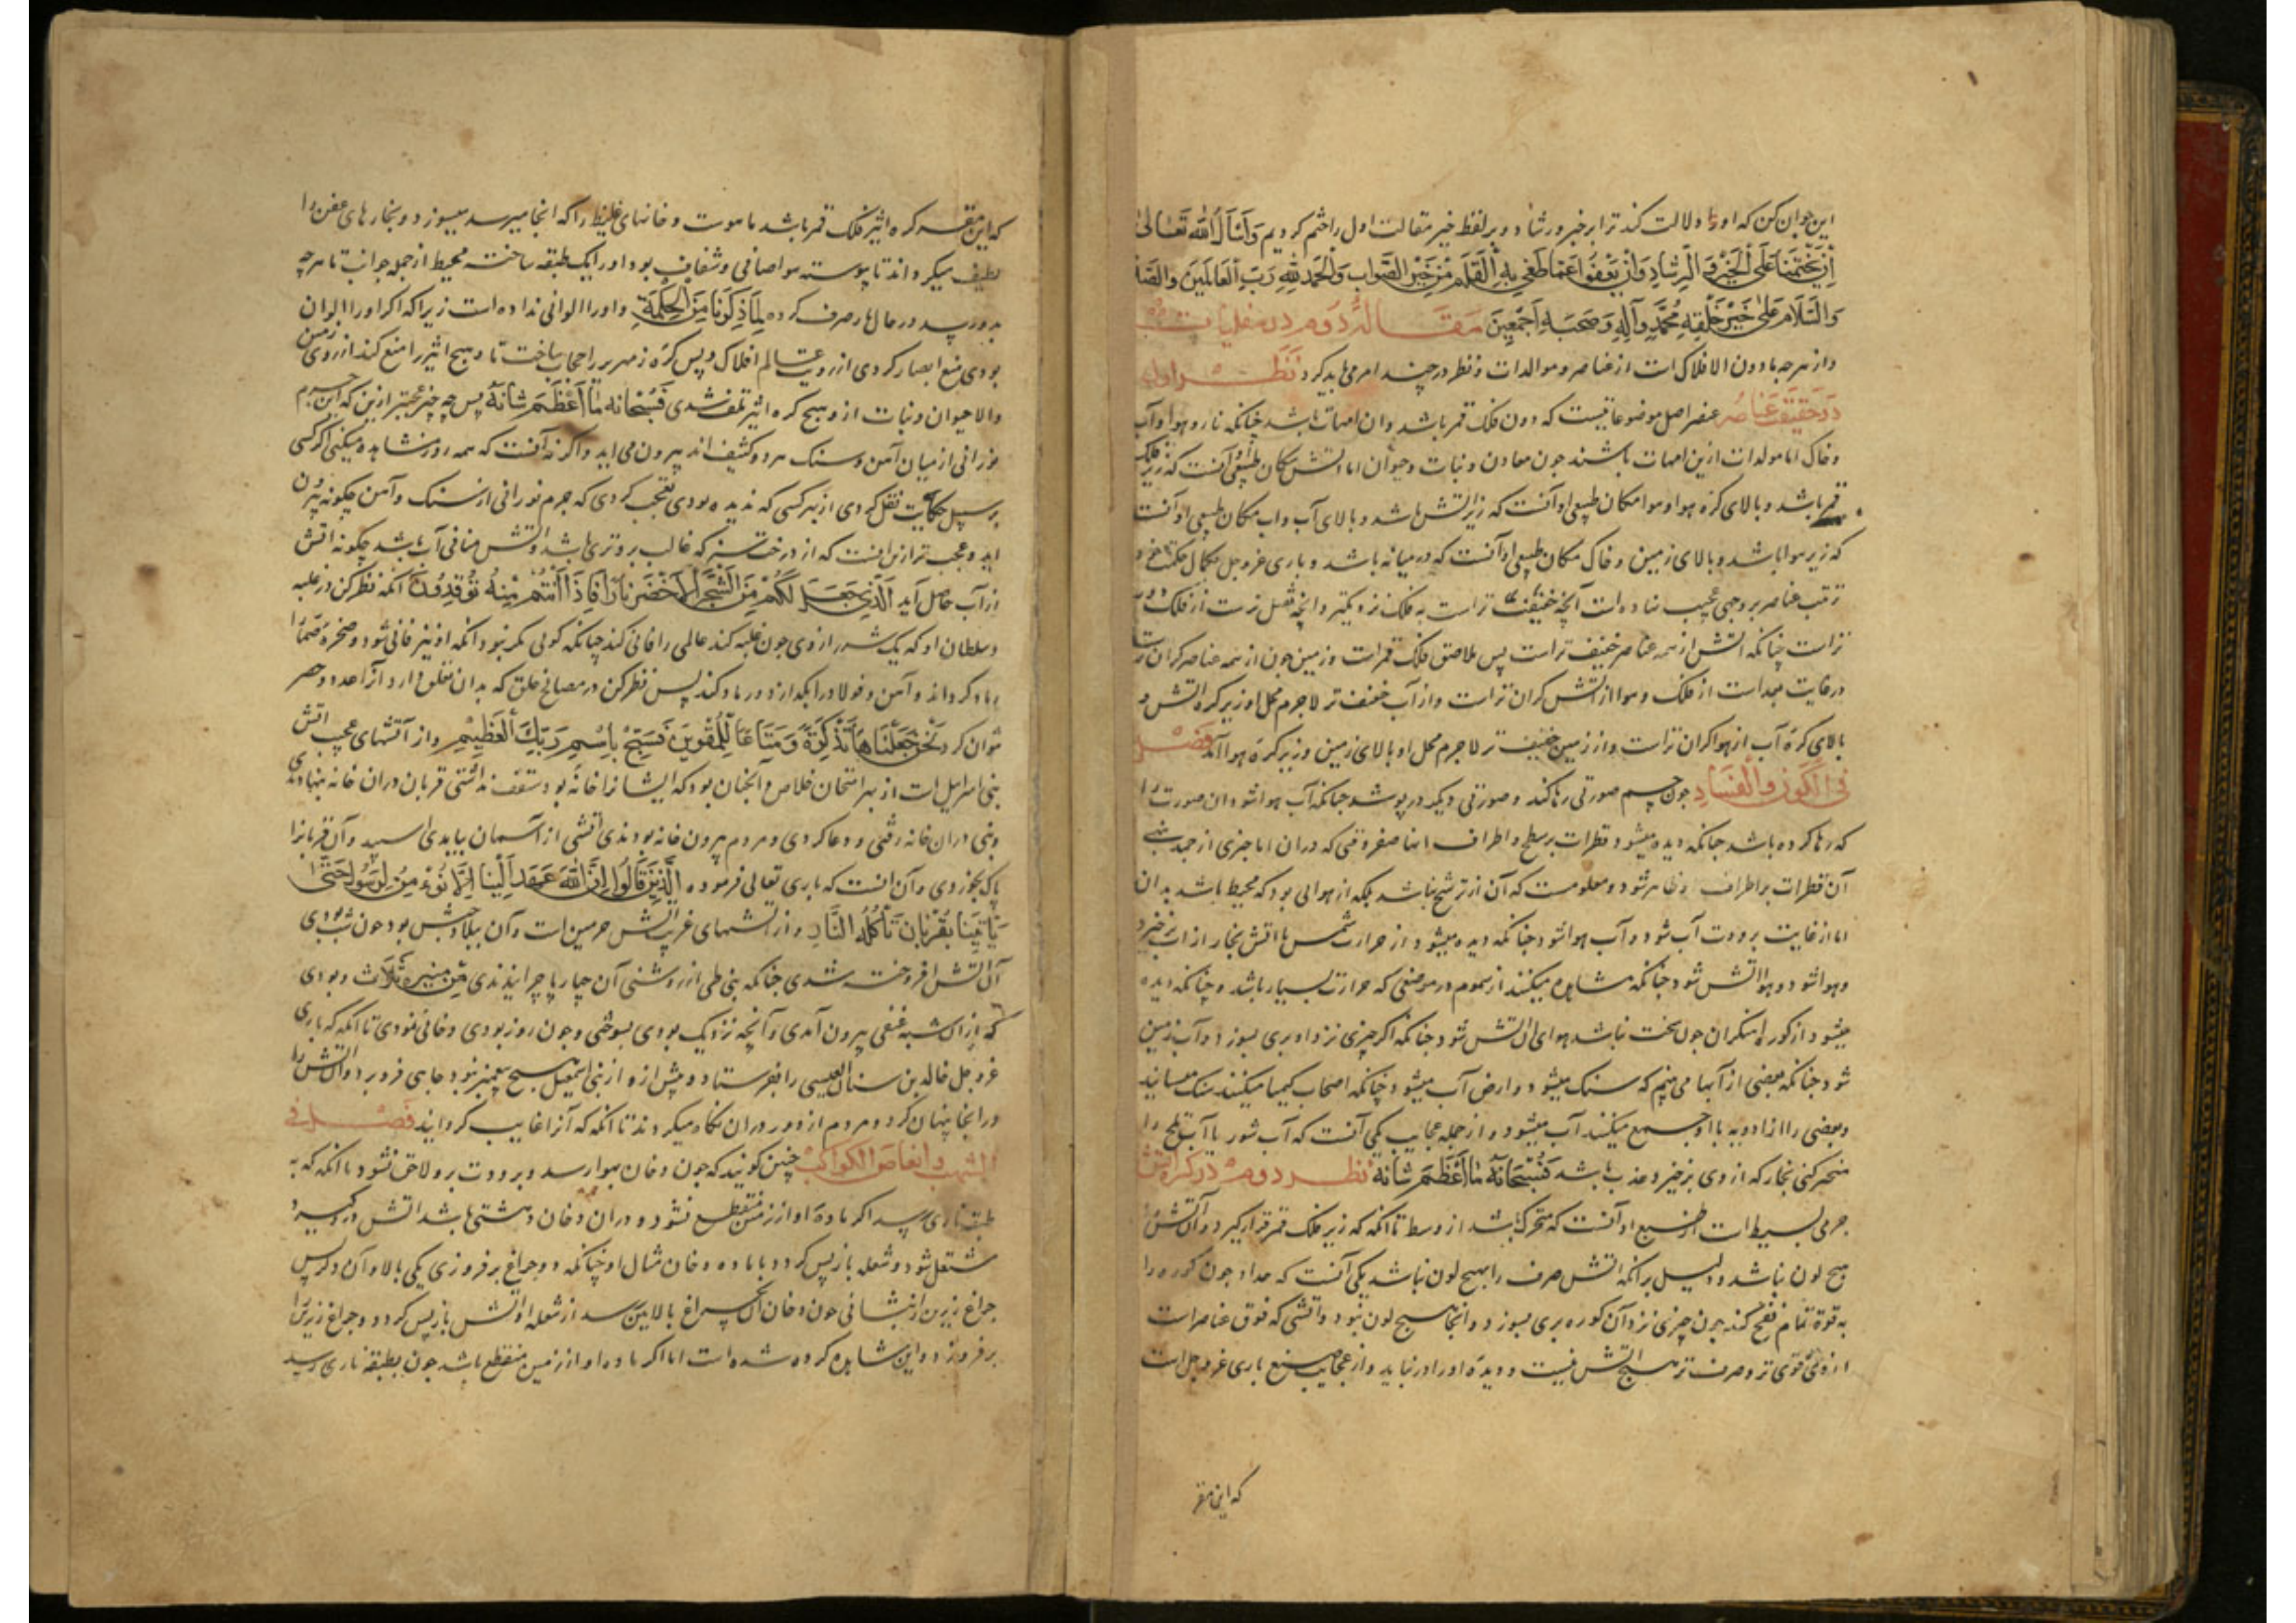 این جوان کن که او را دلالت کند ترا بر خیر و رشاد و بر لفظ خیر مقالت اول را ختم کردیم وَاَسْاَلُ اللّٰهَ تَعَالیٰ
اَنْ یَخْتِمَنَا عَلَی الْخَیْرِ وَ الرَّشَادِ وَاَنْ یَعْفُوَ اعَمَّا طَغیٰ بِهِ الْقَلَم مِنْ خَیْرِ الصَّواب وَالْحَمدُ لِلّٰهِ رَبِّ الْعَالَمِینَ وَالصَّلا
وَالسَّلَام عَلیٰ خَیْرِ خَلْقِهِ مُحَمَّدٍ وَآلِهِ وَصَحْبِهِ اَجْمَعِینَ مَقَالَهٔ دَوم در سفلیات
و از هر چه ما دون الافلاک است از عناصر و موالدات و نظر در چند امر می باید کرد نَظَر اول
دَر حَقیقَت عَناصُر عنصر اصل موضوعاتیست که دون فلک قمر باشد و ان امهات باشد چنانکه نار و هوا و آب
و خاک اما مولدات ازین امهات باشند چون معادن و نبات و حیوان اما اتش مکان طبیعی او آنست که زیر فلک
قمر باشد و بالای کره هوا و هوا مکان طبیعی او آنست که زیر اتش باشد و بالای آب و اب مکان طبیعی او آنست
که زیر هوا باشد و بالای زمین و خاک مکان طبیعی او آنست که در میانه باشد و باری عز و جل بکمال حکمت خود
ترتیب عناصر بر وجهی عجیب نهاده است آنچه خفیف تر است به فلک نزدیکتر و انچه ثقیل تر است از فلک دور
تر است چنانکه اتش از همه عناصر خفیف تر است پس ملاصق فلک قمر است و زمین چون از همه عناصر گران تر است
در غایت بعد است از فلک و هوا از اتش گران تر است و از آب خفیف تر لا جرم محل او زیر کره اتش و
بالای کره آب از هوا گران تر است و از زمین خفیف تر لا جرم محل او بالای زمین و زیر کره هوا آمد فصل
فی الکون و الفساد چون جسم صورتی رها کند و صورتی دیگر در پوشد چنانکه آب هوا شود ان صورت را
که رها کرده باشد چنانکه دیده میشود قطرات بر سطح و اطراف انا صفر وقتی که دران انا چیزی از جمد نهی
آن قطرات بر اطراف ظاهر شود و معلومست که آن از ترشح نباشد بلکه از هوایی بود که محیط باشد بدان
اما از غایت برودت آب شود و آب هوا شود چنانکه دیده میشود از حرارت شمس یا اتش بخار از اب بر خیزد
و هوا شود و هوا اتش شود چنانکه مشاهده میکنند از سموم در موضعی که حرارت بسیار باشد و چنانکه دیده
میشود از کوره اهنگران چون سخت نباشد هوای ان اتش شود چنانکه اگر چیزی نزد او بری بسوزد و آب زمین
شود چنانکه بعضی از آبها می بینم که سنک میشود و ارض آب میشود چنانکه اصحاب کیمیا میکنند سنک میسایند
و بعضی را از ادویه با او جمع میکنند آب میشود و از جمله عجایب یکی آنست که آب شور یا آب تلخ را
متحر کنی بخار که از وی بر خیزد عذب باشد فَسُبْحَانَهُ مَا اَعْظَمَ شَانَهُ نظر دوم در کرة اتش
جرمی بسیط است از طبیع او آنست که متحرک باشد از وسط تا انکه که زیر فلک قمر قرار گیرد و آن اتش را
هیچ لون نباشد و دلیل بر انکه اتش صرف را هیچ لون نباشد یکی آنست که حداد چون کوره را
به قوة تمام نفخ کند چون چیزی نزد آن کوره بری بسوزد و انجا هیچ لون نبود و اتشی که فوق عناصر است
از وی قوی تر و صرف تر هیچ اتش نیست و دیده او را در نیابد و از عجایب صنع باری عز و جل است
که این مقر
که این مقعر کره اثیر فلک قمر باشد ما موت دخانهای غلیظ را که انجا میرسد میسوزد و بخارهای عفن را
لطیف میگرداند تا پیوسته هوا صافی و شفاف بود او را یک طبقه ساخت محیط از جمله جوانب تا هر چه
بدو رسد در حال نار صرف کرده لِمَا ذَکَرْنَا مِنَ الْحِکْمَةِ و او را الوانی نداده است زیرا که اگر او را الوان
بودی منع ابصار کردی از رویت عالم افلاک و پس کره زمهریر را حجاب ساخت تا وهج اثیر را منع کند از روی زمین
و الا حیوان و نبات از وهج کره اثیر تلف شدی فَسُبْحَانَهُ مَا اَعْظَمَ شَانَهُ پس چه چیز عجبتر ازین که این جرم
نورانی از میان آهن و سنک هر دو کثیف اند بیرون می اید و اگر نه آنست که همه روز مشاهده میکنی اگر کسی
بر سبیل حکایت نقل کردی از بهر کسی که ندیده بودی تعجب کردی که جرم نورانی از سنک و آهن چگونه بیرون
اید و عجب تر ازین انست که از درخت سبز که غالب برو تری باشد و اتش منافی آب باشد چگونه اتش
از آب حاصل آید اَلَّذِی جَعَلَ لَکُمْ مِنَ الشَّجَرِ الْاَخْضَرِ نَارًا فَاِذَا اَنْتُمْ مِنْهُ تُوقِدُونَ آنکه نظر کن در غلبه
و سلطان او که یک شرر از وی چون غلبه کند عالمی را فانی کند چنانکه گویی مگر نبود انکه او نیز فانی شود و صخره صما را
رماد کرداند و آهن و فولاد را بکدازد و رماد کند پس نظر کن در مصالح خلق که بدان تعلق دارد آنرا عدد و حصر
نتوان کرد نَحْنُ جَعَلْنَاهَا تَذْکِرَةً وَ مَتَاعًا لِلْمُقْوِینَ فَسَبِّحْ بِاسْمِ رَبِّکَ الْعَظِیمِ و از آتشهای عجیب اتش
بنی اسرایل است از بهر امتحان خلاص و آنچنان بود که ایشانرا خانه بود سقف نداشتی قربان دران خانه بنهادندی
و نبی دران خانه رفتی و دعا کردی و مردم بیرون خانه بودندی آتشی از آسمان بیامدی اسپید و آن قربانرا
پاک بخوردی و آن انست که باری تعالی فرموده الَّذِینَ قَالُوا اِنَّ اللّٰهَ عَهِدَ اِلَیْنَا اِلَّا نُؤْمِنَ لِرَسُولٍ حَتّٰی
یَاتِیَنَا بِقُرْبَانٍ تَاْکُلُهُ النَّارُ و از اتشهای غریب اتش حرمین است و آن ببلاد عبس بود چون شب بودی
آن اتش افروخته شدی چنانکه بنی طی از روشنی آن چهارپا چرانیدندی مِنْ مَسِیرَهِ ثَلَاثَ و بودی
که از آن شبه عنقی بیرون آمدی و آنچه نزدیک بودی بسوختی و چون روز بودی دخانی نمودی تا انکه که باری
عز و جل خالد بن سنان العبسی را بفرستاد و پیش ازو از بنی اسمعیل هیچ پیغمبر نبود چاهی فرو برد و آن اتش را
در انجا پنهان کرد و مردم از دور دران نگاه میکردند تا انکه که آنرا غایب گردانید فصل فی
الشهب و انقاض الکواکب چنین گویند که چون دخان بهوا رسد و برودت برو لاحق نشود تا انکه که به
طبقه ناری رسد اگر ماده او از زمین منقطع نشود و دران دخان دهنیتی باشد اتش درو گیرد
مشتعل شود و شعله باز پس گردد با ماده دخان مثال او چنانکه دو چراغ بر فروزی یکی بالا و آن دگر پس
چراغ زیرین را بنشانی چون دخان آن چراغ بالایین رسد از شعله او اتش باز پس گردد و چراغ زیرین را
بر فروزد و این مشاهده کرده شده است اما اگر ماده او از زمین منقطع باشد چون بطبقه ناری رسد